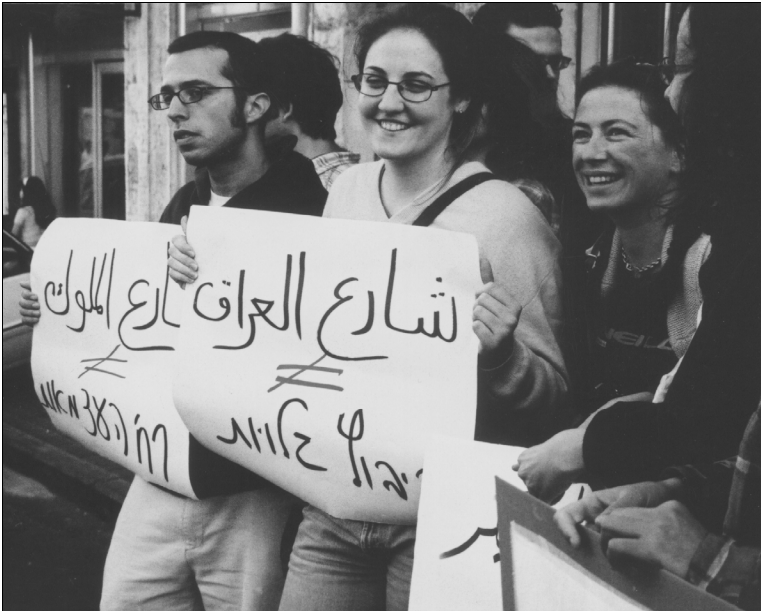 شارع الملوك
≠
רח' העצמאות
شارع العراق
≠
קיבוץ גלויות